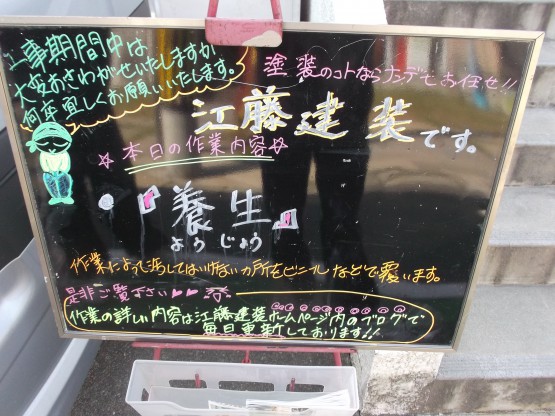 工事期間中は
大変おさわがせいたしますが
何卒宜しくお願いいたします。
塗装のコトならナンデもお任せ!!
江藤建装です。
☆本日の作業内容☆
●『養生』
ようじょう
作業によって汚してはいけないカ所をビニールなどで覆います。
是非ご覧下さい♥♥
作業の詳しい内容は江藤建装ホームページ内のブログで
毎日更新しております!!